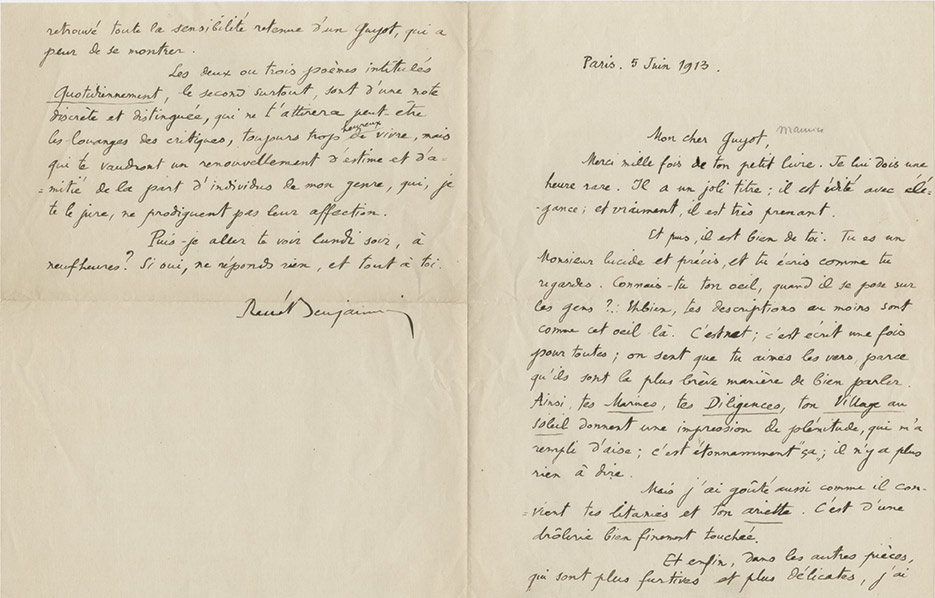 Paris. 5 Juin 1913.
Mon cher Guyot, Maurice
Merci mille fois de ton petit livre. Je lui dois une
heure rare. Il a un joli titre ; il est édité avec élé-
-gance ; et vraiment, il est très prenant.
Et puis, il est bien de toi. Tu es un
Monsieur lucide et précis, et tu écris comme tu
regardes. Connais-tu ton oeil, quand il se pose sur
les gens ?.. Eh bien, tes descriptions au moins sont
comme cet oeil-là. C'est net ; c'est écrit une fois
pour toutes ; on sent que tu aimes les vers, parce
qu'ils sont la plus brève manière de bien parler.
Ainsi, tes Marines, tes Diligences, ton Village au
soleil donnent une impression de plénitude, qui m'a
rempli d'aise ; c'est étonnamment "ça" ; il n'y a plus
rien à dire.
Mais j'ai goûté aussi comme il con-
=vient tes litanies et ton ariette. C'est d'une
drôlerie bien finement touchée.
Et enfin, dans les autres pièces,
qui sont plus furtives et plus délicates, j'ai
retrouvé toute la sensibilité retenue d'un Guyot, qui a
peur de se montrer.
Les deux ou trois poèmes intitulés
Quotidiennement, le second surtout, sont d'une note
discrète et distinguée, qui ne t'attirera peut-être
les louanges des critiques, toujours trop heureux de vivre, mais
qui te vaudront un renouvellement d'estime et d'a-
=mitié de la part d'individus de mon genre, qui, je
te le jure, ne prodiguent pas leur affection.
Puis-je aller te voir lundi soir, à
neuf heures ? Si oui, ne réponds rien, et tout à toi.
René Benjamin